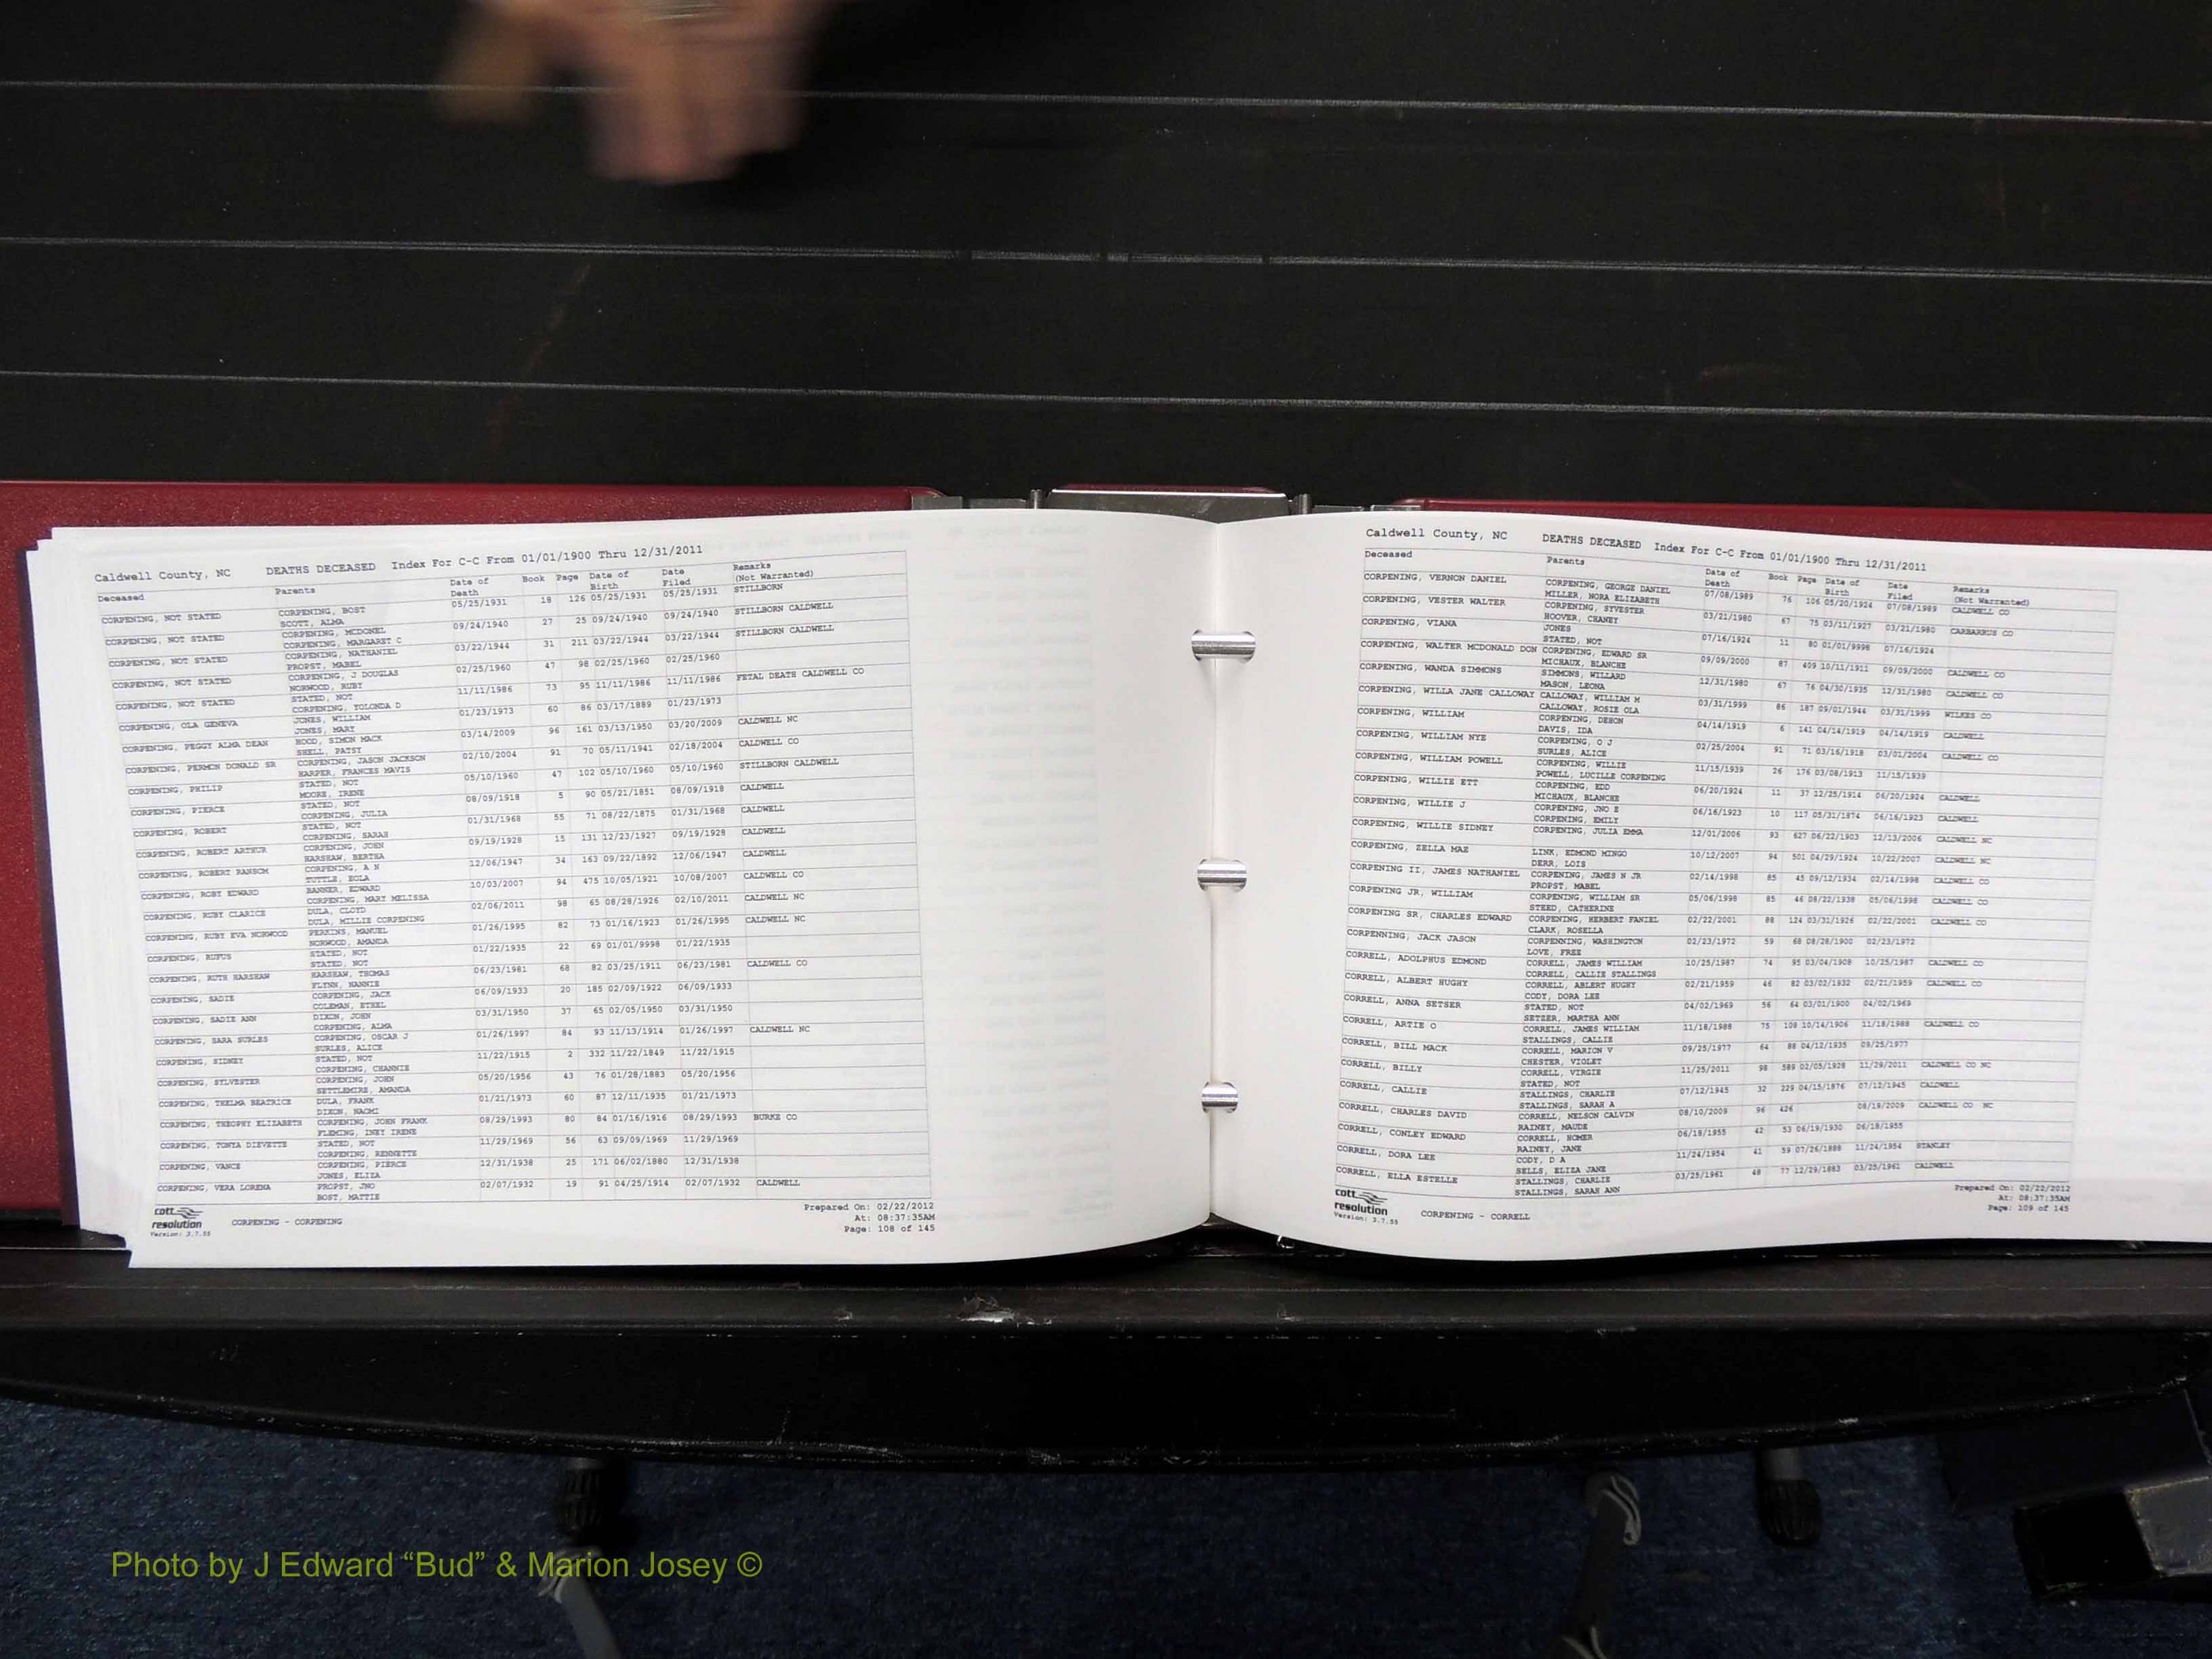 Caldwell County, NC DEATHS DECEASED Index For C-C From 01/01/1900 Thru 12/31/2011
Deceased Parents Date of Death Book Page Date of Birth Date Filed Remarks (Not Warranted)
CORPENING, NOT STATED CORPENING, BOST 05/25/1931 18 126 05/25/1931 05/25/1931 STILLBORN
SCOTT, ALMA
CORPENING, NOT STATED CORPENING, MCDONEL 09/24/1940 27 25 09/24/1940 09/24/1940 STILLBORN CALDWELL
CORPENING, MARGARET C
CORPENING, NOT STATED CORPENING, NATHANIEL 03/22/1944 31 211 03/22/1944 03/22/1944 STILLBORN CALDWELL
PROPST, MABEL
CORPENING, NOT STATED CORPENING, J DOUGLAS 02/25/1960 47 98 02/25/1960 02/25/1960
NORWOOD, RUBY
CORPENING, NOT STATED STATED, NOT 11/11/1986 73 95 11/11/1986 11/11/1986 FETAL DEATH CALDWELL CO
CORPENING, YOLONDA D
CORPENING, OLA GENEVA JONES, WILLIAM 01/23/1973 60 86 03/17/1889 01/23/1973
JONES, MARY
CORPENING, PEGGY ALMA DEAN HOOD, SIMON MACK 03/14/2009 96 161 03/13/1950 03/20/2009 CALDWELL NC
SHELL, PATSY
CORPENING, PERMON DONALD SR CORPENING, JASON JACKSON 02/10/2004 91 70 05/11/1941 02/18/2004 CALDWELL CO
HARPER, FRANCES MAVIS
CORPENING, PHILIP STATED, NOT 05/10/1960 47 102 05/10/1960 05/10/1960 STILLBORN CALDWELL
MOORE, IRENE
CORPENING, PIERCE STATED, NOT 08/09/1918 5 90 05/21/1851 08/09/1918 CALDWELL
CORPENING, JULIA
CORPENING, ROBERT STATED, NOT 01/31/1968 55 71 08/22/1875 01/31/1968 CALDWELL
CORPENING, SARAH
CORPENING, ROBERT ARTHUR CORPENING, JOHN 09/19/1928 15 131 12/23/1927 09/19/1928 CALDWELL
HARSHAW, BERTHA
CORPENING, ROBERT RANSOM CORPENING, A N 12/06/1947 34 163 09/22/1892 12/06/1947 CALDWELL
TUTTLE, EOLA
CORPENING, ROBY EDWARD BANNER, EDWARD 10/03/2007 94 475 10/05/1921 10/08/2007 CALDWELL CO
CORPENING, MARY MELISSA
CORPENING, RUBY CLARICE DULA, CLOYD 02/06/2011 98 65 08/28/1926 02/10/2011 CALDWELL NC
DULA, MILLIE CORPENING
CORPENING, RUBY EVA NORWOOD PERKINS, MANUEL 01/26/1995 82 73 01/16/1923 01/26/1995 CALDWELL NC
NORWOOD, AMANDA
CORPENING, RUFUS STATED, NOT 01/22/1935 22 69 01/01/9998 01/22/1935
STATED, NOT
CORPENING, RUTH HARSHAW HARSHAW, THOMAS 06/23/1981 68 82 03/25/1911 06/23/1981 CALDWELL CO
FLYNN, NANNIE
CORPENING, SADIE CORPENING, JACK 06/09/1933 20 185 02/09/1922 06/09/1933
COLEMAN, ETHEL
CORPENING, SADIE ANN DIXON, JOHN 03/31/1950 37 65 02/05/1950 03/31/1950
CORPENING, ALMA
CORPENING, SARA SURLES CORPENING, OSCAR J 01/26/1997 84 93 11/13/1914 01/26/1997 CALDWELL NC
SURLES, ALICE
CORPENING, SIDNEY STATED, NOT 11/22/1915 2 332 11/22/1849 11/22/1915
CORPENING, CHANNIE
CORPENING, SYLVESTER CORPENING, JOHN 05/20/1956 43 76 01/28/1883 05/20/1956
SETTLEMIRE, AMANDA
CORPENING, THELMA BEATRICE DULA, FRANK 01/21/1973 60 87 12/11/1935 01/21/1973
DIXON, NAOMI
CORPENING, THEOPHY ELIZABETH CORPENING, JOHN FRANK 08/29/1993 80 84 01/16/1916 08/29/1993 BURKE CO
FLEMING, INEY IRENE
CORPENING, TONYA DIEVETTE STATED, NOT 11/29/1969 56 63 09/09/1969 11/29/1969
CORPENING, RENNETTE
CORPENING, VANCE CORPENING, PIERCE 12/31/1938 25 171 06/02/1880 12/31/1938
JONES, ELIZA
CORPENING, VERA LORENA PROPST, JNO 02/07/1932 19 91 04/25/1914 02/07/1932 CALDWELL
BOST, MATTIE
cott resolution
Version: 3.7.55
CORPENING - CORPENING
Prepared On: 02/22/2012
At: 08:37:35AM
Page: 108 of 145
Caldwell County, NC DEATHS DECEASED Index For C-C From 01/01/1900 Thru 12/31/2011
Deceased Parents Date of Death Book Page Date of Birth Date Filed Remarks (Not Warranted)
CORPENING, VERNON DANIEL CORPENING, GEORGE DANIEL 07/08/1989 76 106 05/20/1924 07/08/1989 CALDWELL CO
MILLER, NORA ELIZABETH
CORPENING, VESTER WALTER CORPENING, SYVESTER 03/21/1980 67 75 03/11/1927 03/21/1980 CABBARRUS CO
HOOVER, CHANEY
CORPENING, VIANA JONES 07/16/1924 11 80 01/01/9998 07/16/1924
STATED, NOT
CORPENING, WALTER MCDONALD DON CORPENING, EDWARD SR 09/09/2000 87 409 10/11/1911 09/09/2000 CALDWELL CO
MICHAUX, BLANCHE
CORPENING, WANDA SIMMONS SIMMONS, WILLARD 12/31/1980 67 76 04/30/1935 12/31/1980 CALDWELL CO
MASON, LEONA
CORPENING, WILLA JANE CALLOWAY CALLOWAY, WILLIAM M 03/31/1999 86 187 09/01/1944 03/31/1999 WILKES CO
CALLOWAY, ROSIE OLA
CORPENING, WILLIAM CORPENING, DEHON 04/14/1919 6 141 04/14/1919 04/14/1919 CALDWELL
DAVIS, IDA
CORPENING, WILLIAM NYE CORPENING, O J 02/25/2004 91 71 03/16/1918 03/01/2004 CALDWELL CO
SURLES, ALICE
CORPENING, WILLIAM POWELL CORPENING, WILLIE 11/15/1939 26 176 03/08/1913 11/15/1939
POWELL, LUCILLE CORPENING
CORPENING, WILLIE ETT CORPENING, EDD 06/20/1924 11 37 12/25/1914 06/20/1924 CALDWELL
MICHAUX, BLANCHE
CORPENING, WILLIE J CORPENING, JNO E 06/16/1923 10 117 05/31/1874 06/16/1923 CALDWELL
CORPENING, EMILY
CORPENING, WILLIE SIDNEY CORPENING, JULIA EMMA 12/01/2006 93 627 06/22/1903 12/13/2006 CALDWELL NC
CORPENING, ZELLA MAE LINK, EDMOND MINGO 10/12/2007 94 501 04/29/1924 10/22/2007 CALDWELL NC
DERR, LOIS
CORPENING II, JAMES NATHANIEL CORPENING, JAMES N JR 02/14/1998 85 45 09/12/1934 02/14/1998 CALDWELL CO
PROPST, MABEL
CORPENING JR, WILLIAM CORPENING, WILLIAM SR 05/06/1998 85 46 08/22/1938 05/06/1998 CALDWELL CO
STEED, CATHERINE
CORPENING SR, CHARLES EDWARD CORPENING, HERBERT FANIEL 02/22/2001 88 124 03/31/1926 02/22/2001 CALDWELL CO
CLARK, ROSELLA
CORPENNING, JACK JASON CORPENNING, WASHINGTON 02/23/1972 59 68 08/28/1900 02/23/1972
LOVE, FREE
CORRELL, ADOLPHUS EDMOND CORRELL, JAMES WILLIAM 10/25/1987 74 95 03/04/1908 10/25/1987 CALDWELL CO
CORRELL, CALLIE STALLINGS
CORRELL, ALBERT HUGHY CORRELL, ABLERT HUGHY 02/21/1959 46 82 03/02/1932 02/21/1959 CALDWELL CO
CODY, DORA LEE
CORRELL, ANNA SETSER STATED, NOT 04/02/1969 56 64 03/01/1900 04/02/1969
SETZER, MARTHA ANN
CORRELL, ARTIE O CORRELL, JAMES WILLIAM 11/18/1988 75 108 10/14/1906 11/18/1988 CALDWELL CO
STALLINGS, CALLIE
CORRELL, BILL MACK CORRELL, MARION V 09/25/1977 64 88 04/12/1935 09/25/1977
CHESTER, VIOLET
CORRELL, BILLY CORRELL, VIRGIE 11/25/2011 98 589 02/05/1928 11/29/2011 CALDWELL CO NC
STATED, NOT
CORRELL, CALLIE STALLINGS, CHARLIE 07/12/1945 32 229 04/15/1876 07/12/1945 CALDWELL
STALLINGS, SARAH A
CORRELL, CHARLES DAVID CORRELL, NELSON CALVIN 08/10/2009 96 426 08/19/2009 CALDWELL CO NC
RAINEY, MAUDE
CORRELL, CONLEY EDWARD CORRELL, HOMER 06/18/1955 42 53 06/19/1930 06/18/1955
RAINEY, JANE
CORRELL, DORA LEE CODY, D A 11/24/1954 41 39 07/26/1888 11/24/1954 STANLEY
SELLS, ELIZA JANE
CORRELL, ELLA ESTELLE STALLINGS, CHARLIE 03/25/1961 48 77 12/29/1883 03/25/1961 CALDWELL
STALLINGS, SARAH ANN
cott resolution
Version: 3.7.55
CORPENING - CORRELL
Prepared On: 02/22/2012
At: 08:37:35AM
Page: 109 of 145
Photo by J Edward “Bud” & Marion Josey ©